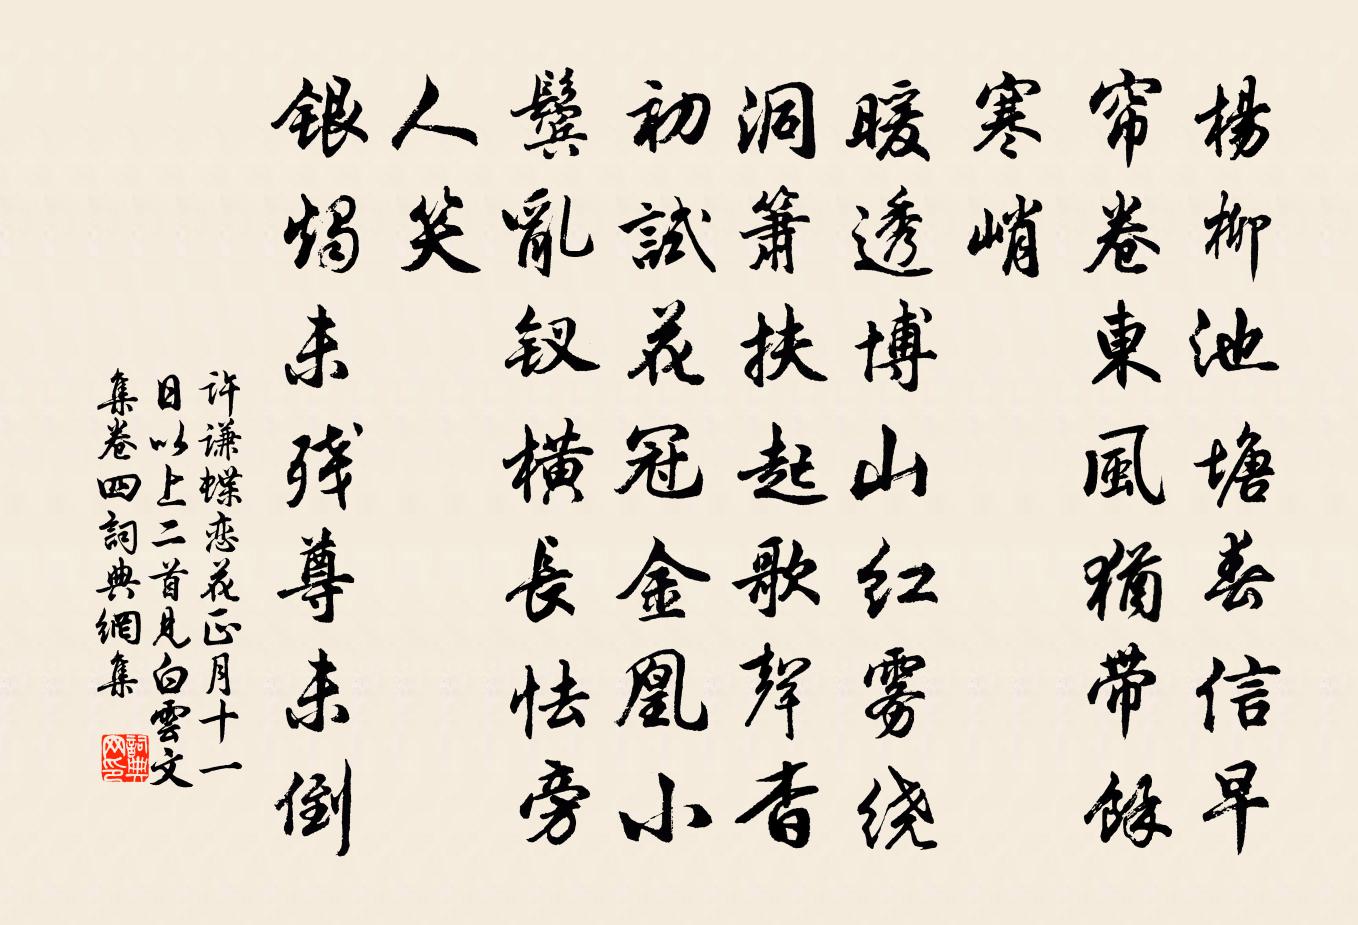 楊柳池塘春信早
帘卷東風猶帶餘
寒峭
暖透博山红雾绕
洞箫扶起歌聲杳
初試花冠金凰小
鬓亂钗横長怯旁
人笑
银燭未残尊未倒
許謙蝶恋花正月十一
日以上二首見白雲文
集卷四詞典網集
詞典
网印